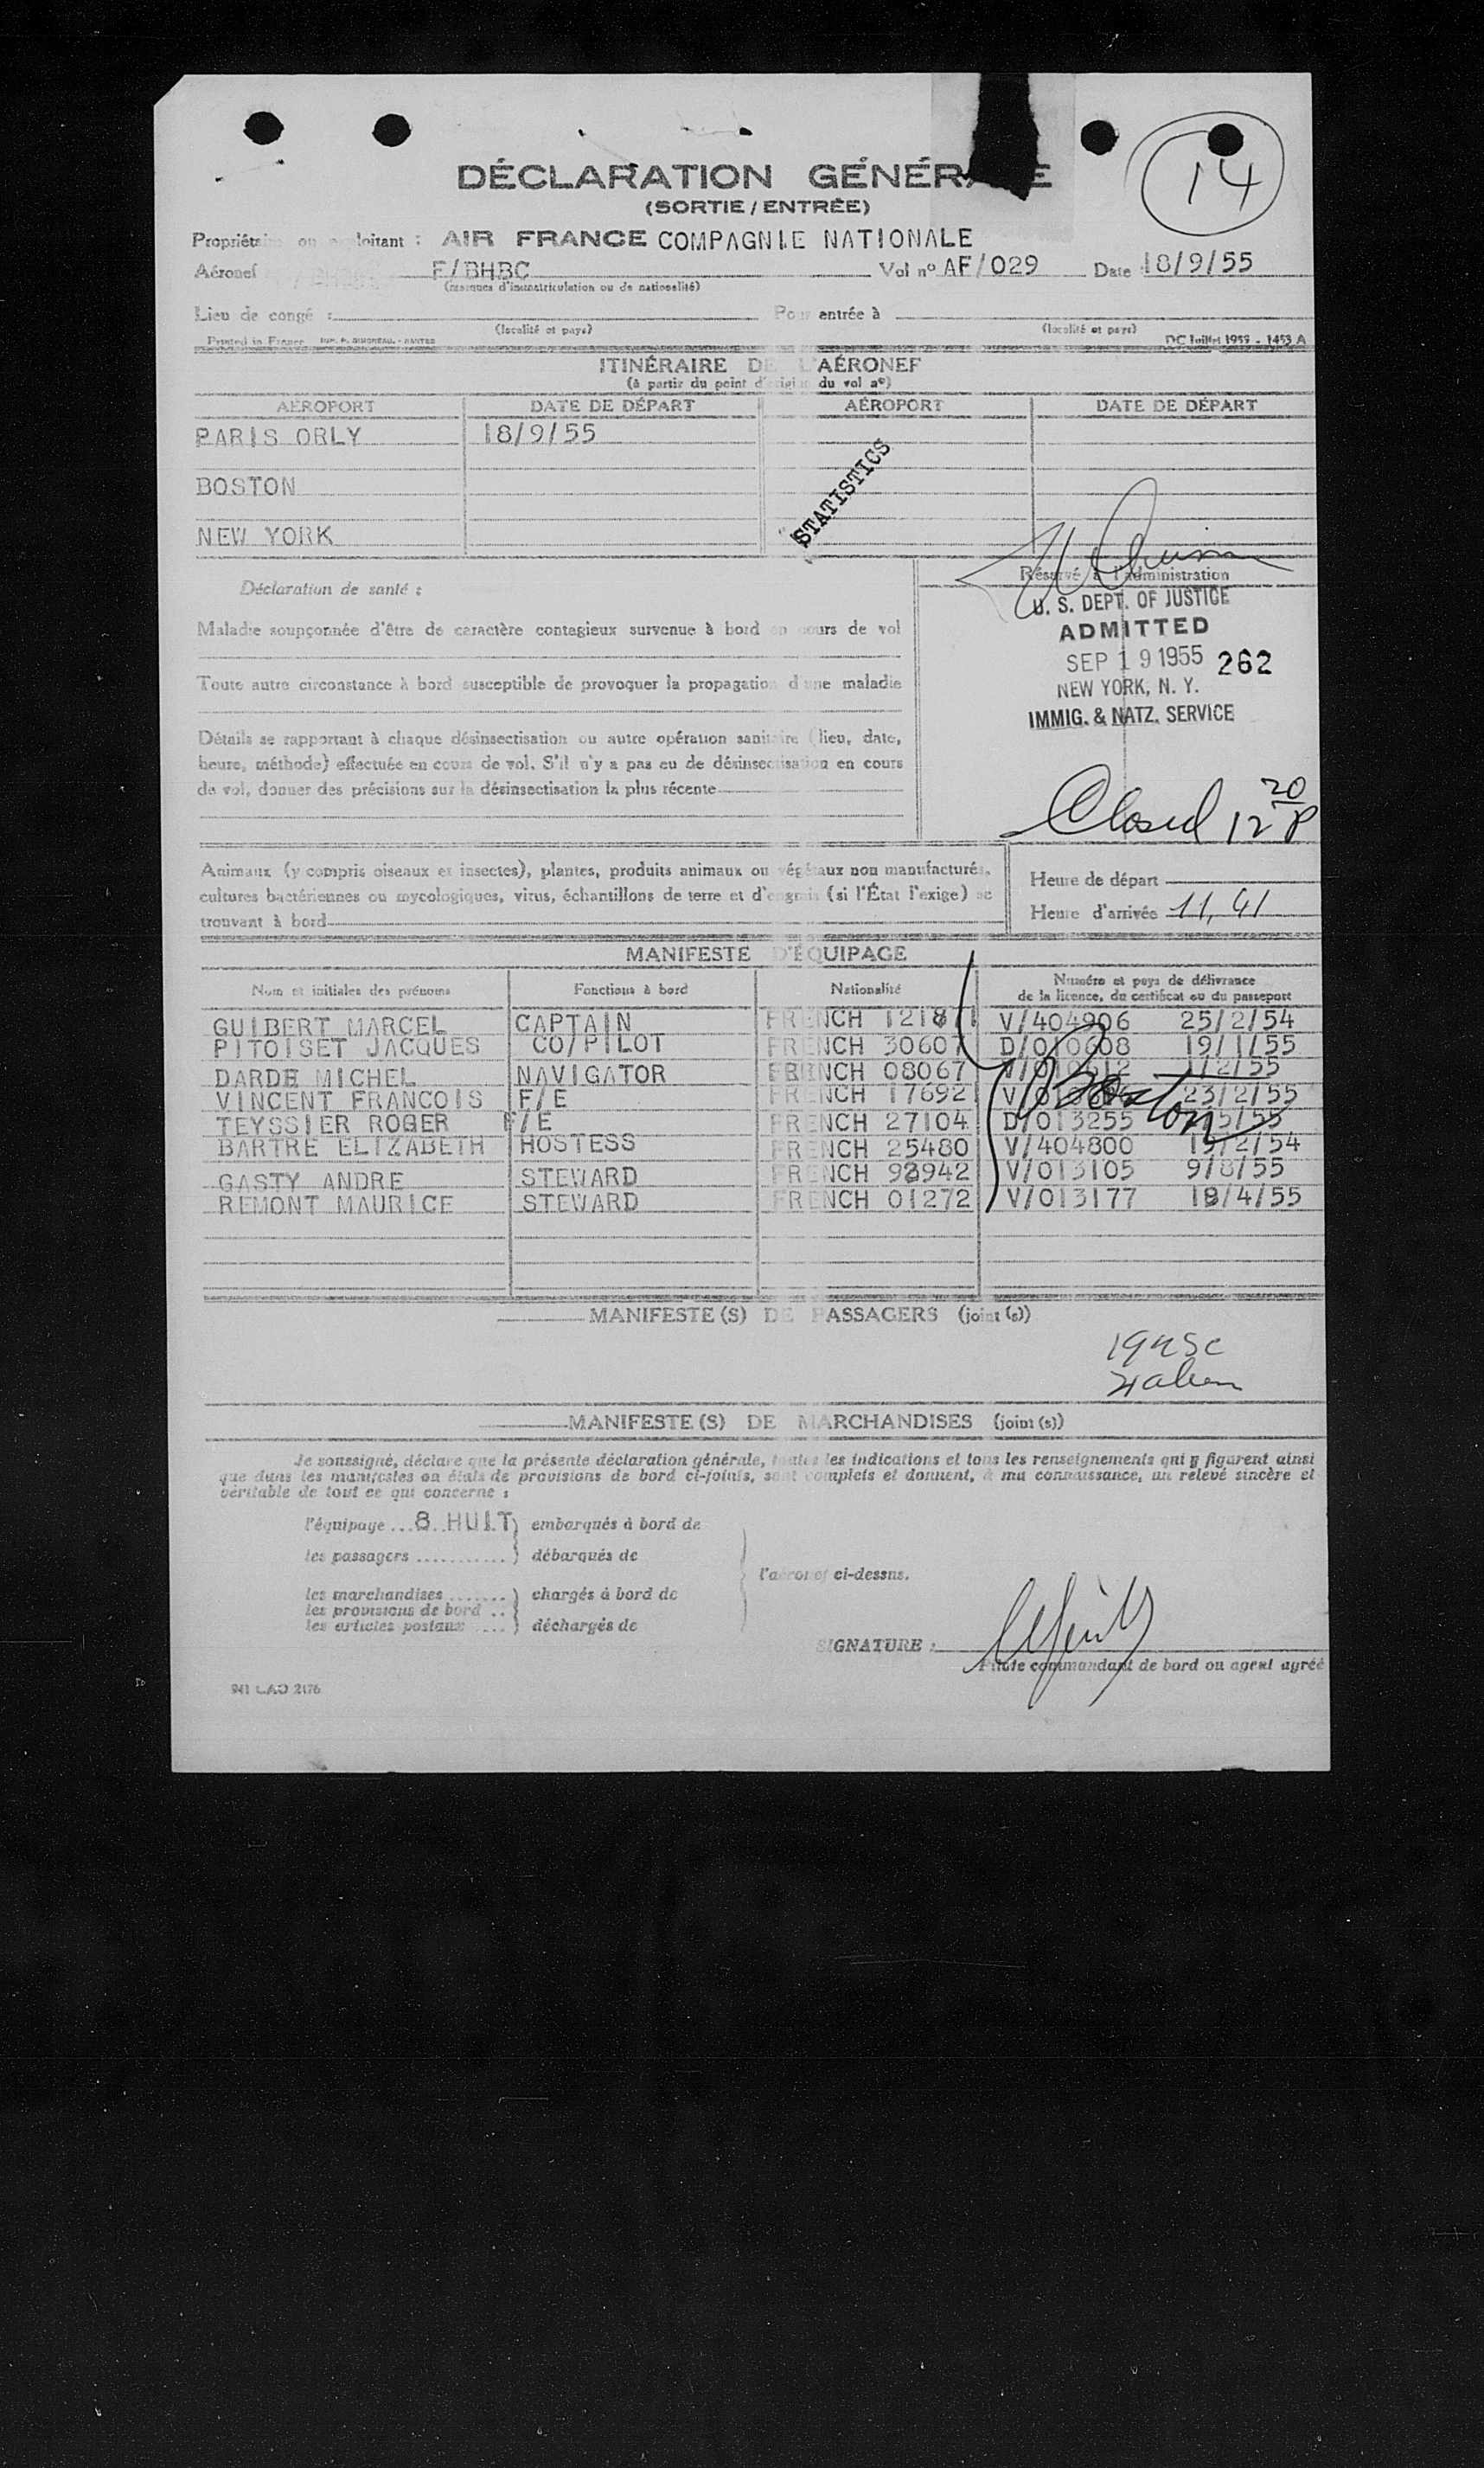 14
DÉCLARATION GÉNÉR E
(SORTIE / ENTRÉE)
Propriét ou loitant : AIR FRANCE COMPAGNIE NATIONALE
Aéronef F/BHBC Vol nº AF/029 Date 18/9/55
(marques d'immatriculation ou de nationalité)
Lieu de congé : Pour entrée à
(localité et pays) (localité et pays)
Printed in France DC Juillet 1955 - 1453 A
ITINÉRAIRE DE L'AÉRONEF
(à partir du point d'origine du vol aº)
AÉROPORT DATE DE DÉPART AÉROPORT DATE DE DÉPART
PARIS ORLY 18/9/55
BOSTON
NEW YORK
STATISTICS
Déclaration de santé :
Réservé à l'administration
U. S. DEPT. OF JUSTICE
ADMITTED
SEP 19 1955 262
NEW YORK, N. Y.
IMMIG. & NATZ. SERVICE
Maladie soupçonnée d'être de caractère contagieux survenue à bord en cours de vol
Toute autre circonstance à bord susceptible de provoquer la propagation d'une maladie
Détails se rapportant à chaque désinsectisation ou autre opération sanitaire (lieu, date,
heure, méthode) effectuée en cours de vol. S'il n'y a pas eu de désinsectisation en cours
de vol, donner des précisions sur la désinsectisation la plus récente
Closed 12 20 P
Animaux (y compris oiseaux et insectes), plantes, produits animaux ou végétaux non manufacturés,
cultures bactériennes ou mycologiques, virus, échantillons de terre et d'engrais (si l'État l'exige) se
trouvant à bord
Heure de départ
Heure d'arrivée 11,41
MANIFESTE D'ÉQUIPAGE
Nom et initiales des prénoms Fonctions à bord Nationalité Numéro et pays de délivrance
de la licence, du certificat ou du passeport
GUIBERT MARCEL CAPTAIN FRENCH V/404906 25/2/54
PITOISET JACQUES CO/PILOT FRENCH 30607 D/010608 19/1/55
DARDE MICHEL NAVIGATOR FRENCH 08067 1/2/55
VINCENT FRANCOIS F/E FRENCH 17692 23/2/55
TEYSSIER ROGER F/E FRENCH 27104 D/013255
BARTRE ELIZABETH HOSTESS FRENCH 25480 V/404800 15/2/54
GASTY ANDRE STEWARD FRENCH V/013105 9/8/55
REMONT MAURICE STEWARD FRENCH 01272 V/013177 18/4/55
Boston
MANIFESTE(S) DE PASSAGERS (joint(s))
19 USC
MANIFESTE(S) DE MARCHANDISES (joint(s))
Je soussigné, déclare que la présente déclaration générale, toutes les indications et tous les renseignements qui y figurent ainsi
que dans les manifestes ou états de provisions de bord ci-joints, sont complets et donnent, à ma connaissance, un relevé sincère et
véritable de tout ce qui concerne :
l'équipage ...8..HUIT) embarqués à bord de
les passagers ...........) débarqués de
l'aéronef ci-dessus.
les marchandises .......) chargés à bord de
les provisions de bord ..
les articles postaux ....) déchargés de
SIGNATURE :
Pilote commandant de bord ou agent agréé
941 CAO 2176